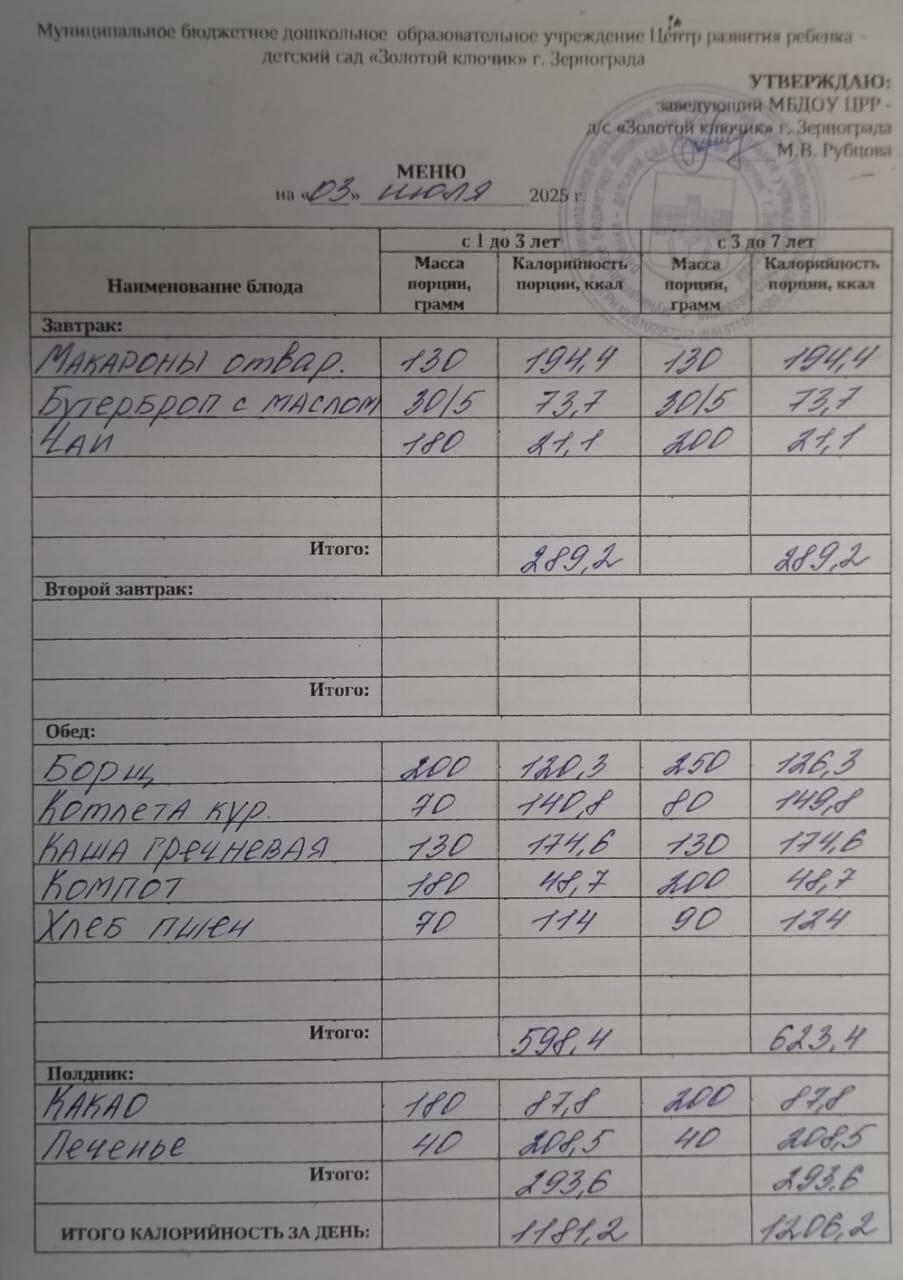 Муниципальное бюджетное дошкольное образовательное учреждение Центр развития ребенка –
детский сад «Золотой ключик» г. Зернограда
УТВЕРЖДАЮ:
заведующий МБДОУ ЦРР -
д/с «Золотой ключик» г. Зернограда
М.В. Рубцова
МЕНЮ
на «03» июля 2025 г.
Наименование блюда с 1 до 3 лет с 3 до 7 лет
Масса порции, грамм Калорийность порции, ккал Масса порции, грамм Калорийность порции, ккал
Завтрак:
Макароны отвар. 130 194,4 130 194,4
Бутерброд с маслом 30/5 73,7 30/5 73,7
Чай 180 21,1 200 21,1
Итого: 289,2 289,2
Второй завтрак:
Итого:
Обед:
Борщ 200 120,3 250 126,3
Котлета кур. 70 140,8 80 149,8
Каша гречневая 130 174,6 130 174,6
Компот 180 48,7 200 48,7
Хлеб пшен 70 114 90 124
Итого: 598,4 623,4
Полдник:
Какао 180 87,8 200 87,8
Печенье 40 208,5 40 208,5
Итого: 293,6 293,6
ИТОГО КАЛОРИЙНОСТЬ ЗА ДЕНЬ: 1181,2 1206,2